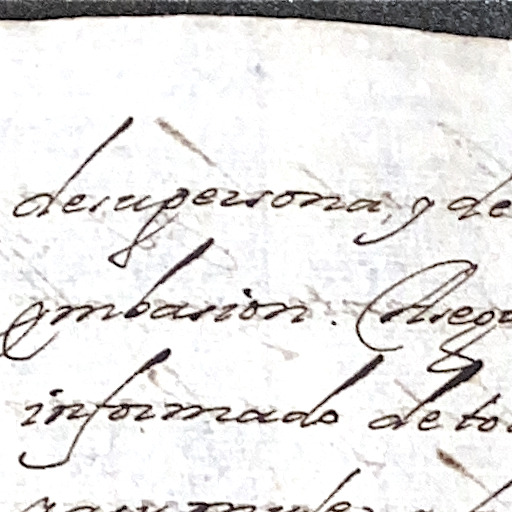 desupersona, y de
embasion. Asegu
informado de to